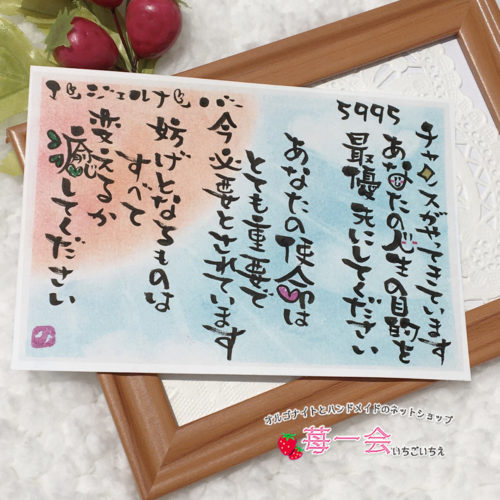 エンジェルナンバー 5995
チャンスがやってきています
あなたの人生の目的を
最優先にしてください
あなたの使命は
とても重要で
今必要とされています
妨げとなるものは
すべて
変えるか
癒してください
オルゴナイトとハンドメイドのネットショップ
苺一会 いちごいちえ